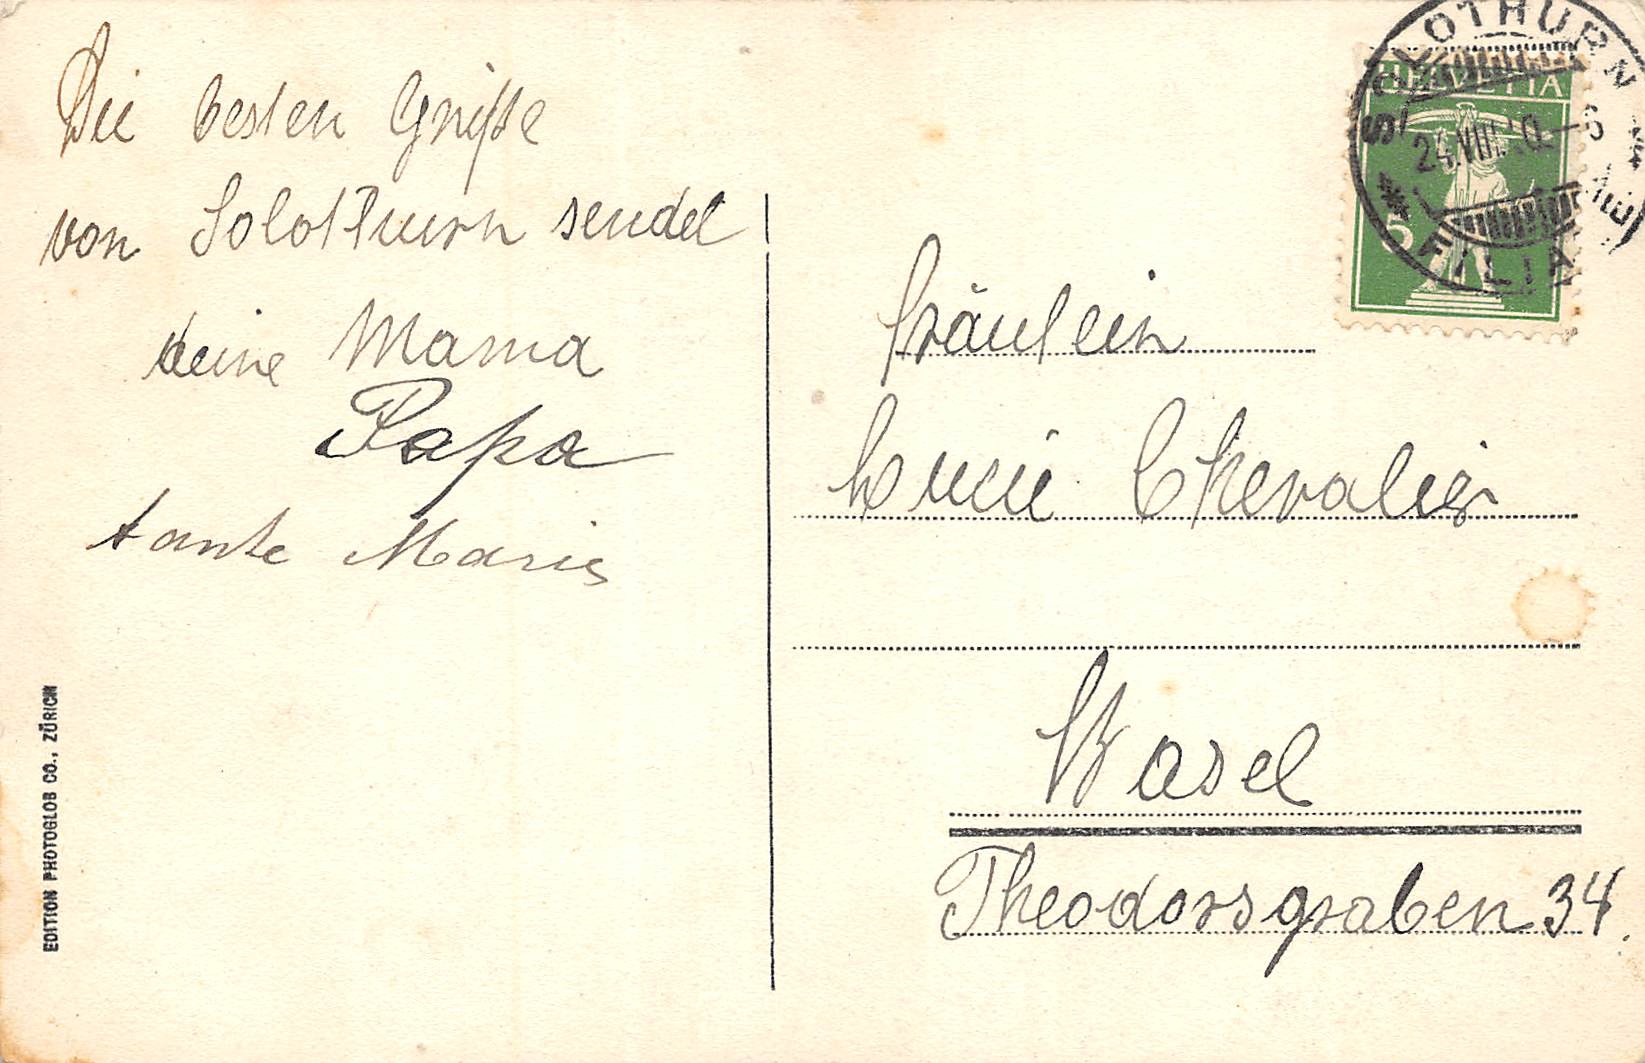 Die besten Grüße
von Solothurn sendet
deine Mama
Papa
tante Marie
EDITION PHOTOGLOB CO., ZÜRICH
SOLOTHURN
HELVETIA
24.VIII.10.—6
5
FILIA
Fräulein
Lucie Chevalier
Basel
Theodorsgraben 34.